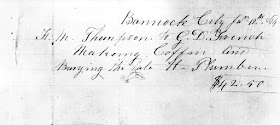 Bannack City Jan 10th 1864
H. M. Thompson to G. D. French
Makeing Coffin and
Burying the late H. Plumber
$42.50